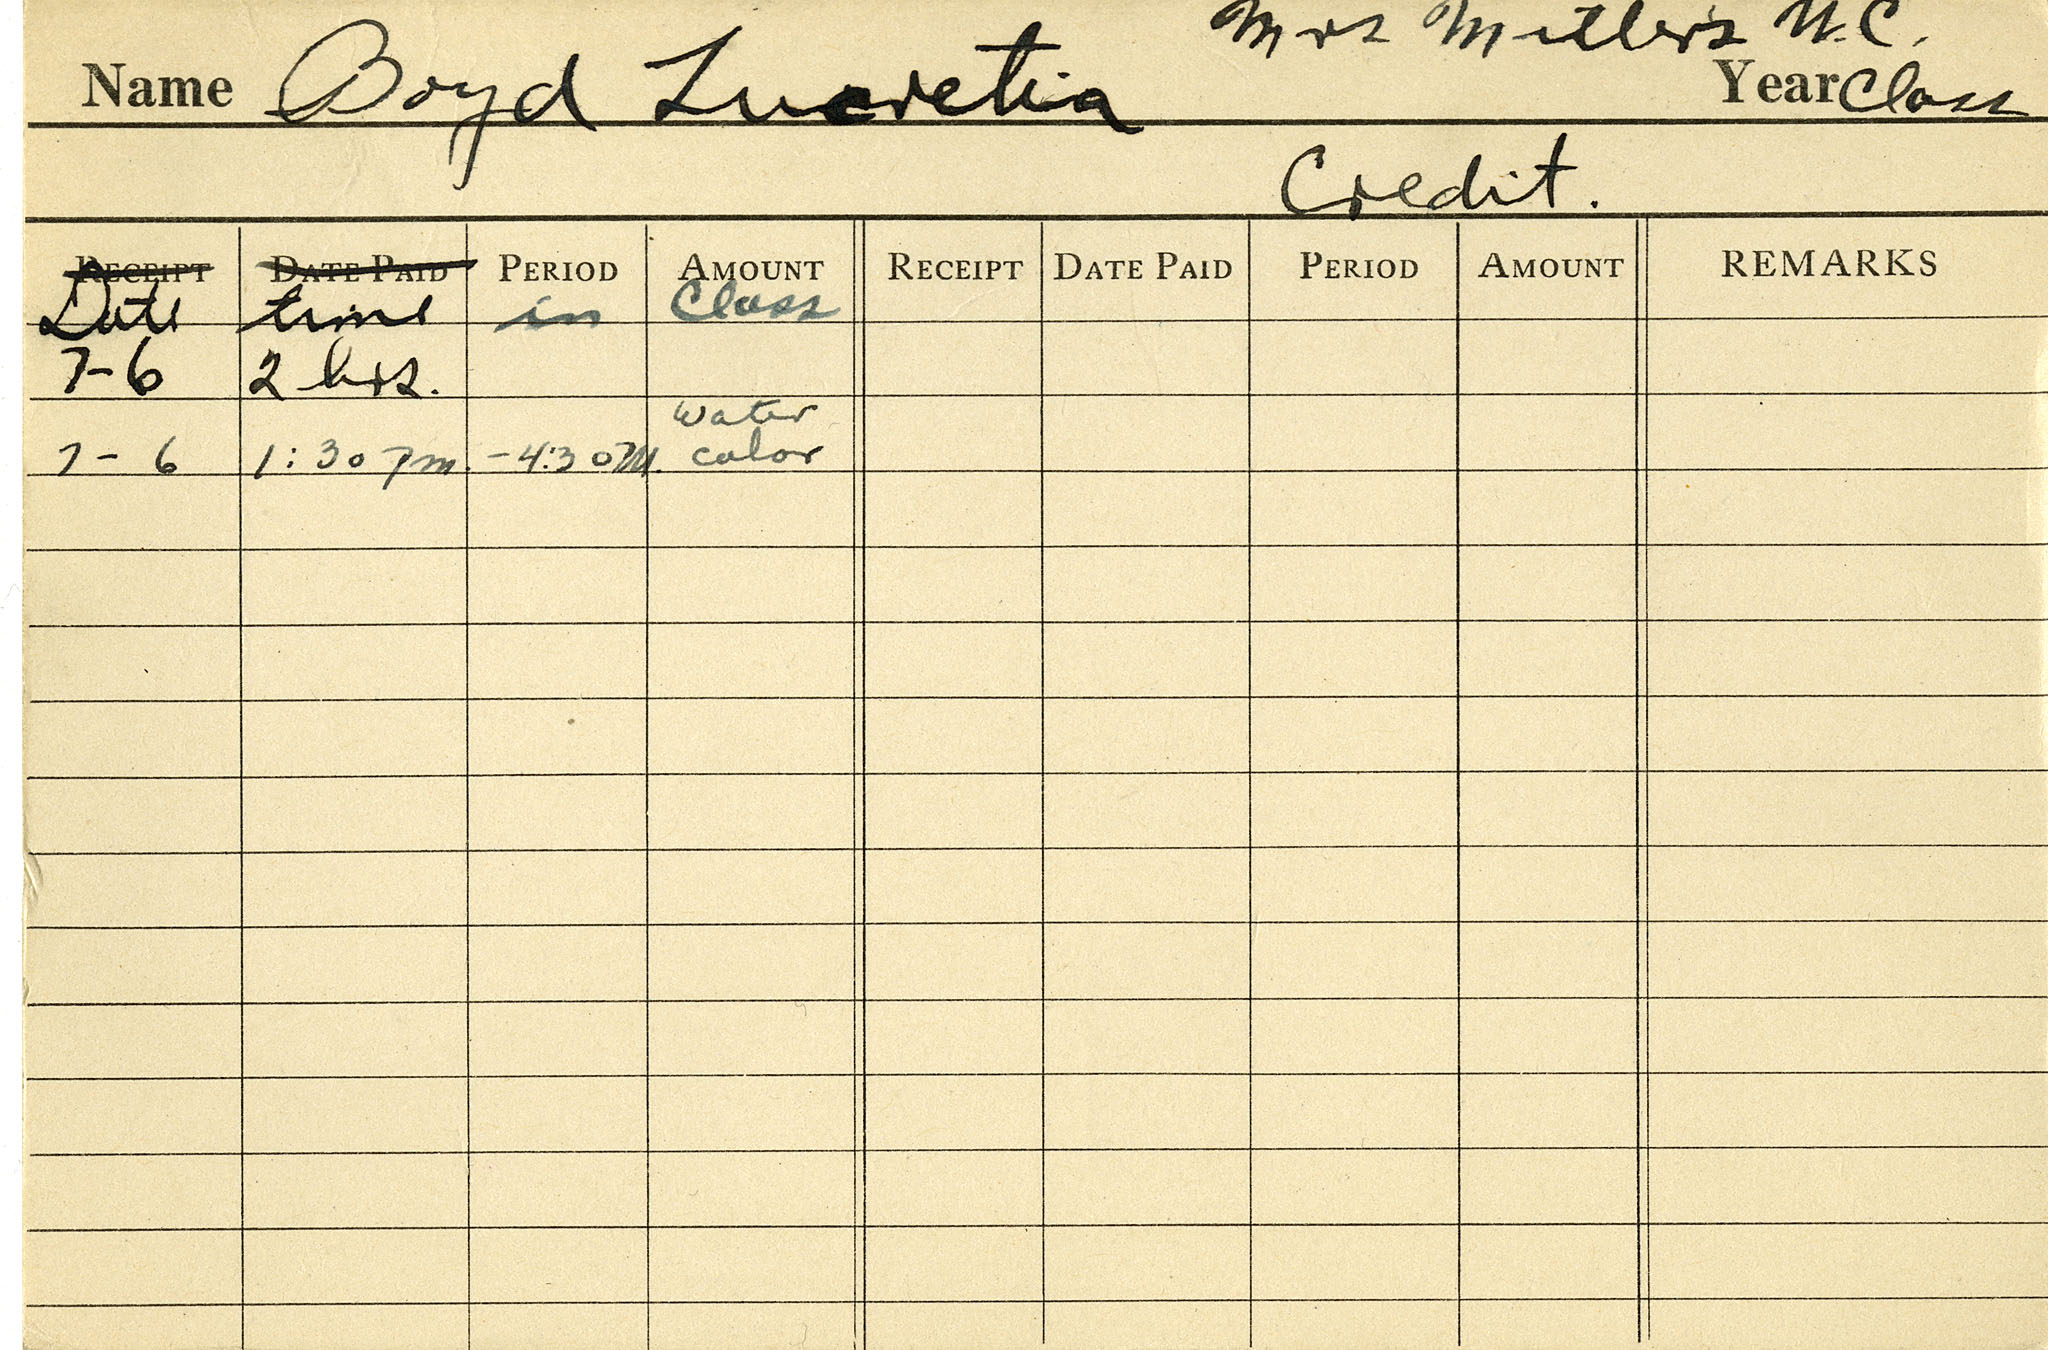 Mrs Miller's W.C.
Name Boyd Lucretia Year Class
Credit.
RECEIPT DATE PAID PERIOD AMOUNT RECEIPT DATE PAID PERIOD AMOUNT REMARKS
Date time in Class
7-6 2 hrs.
7-6 1:30 pm. -4:30 PM. Water
color